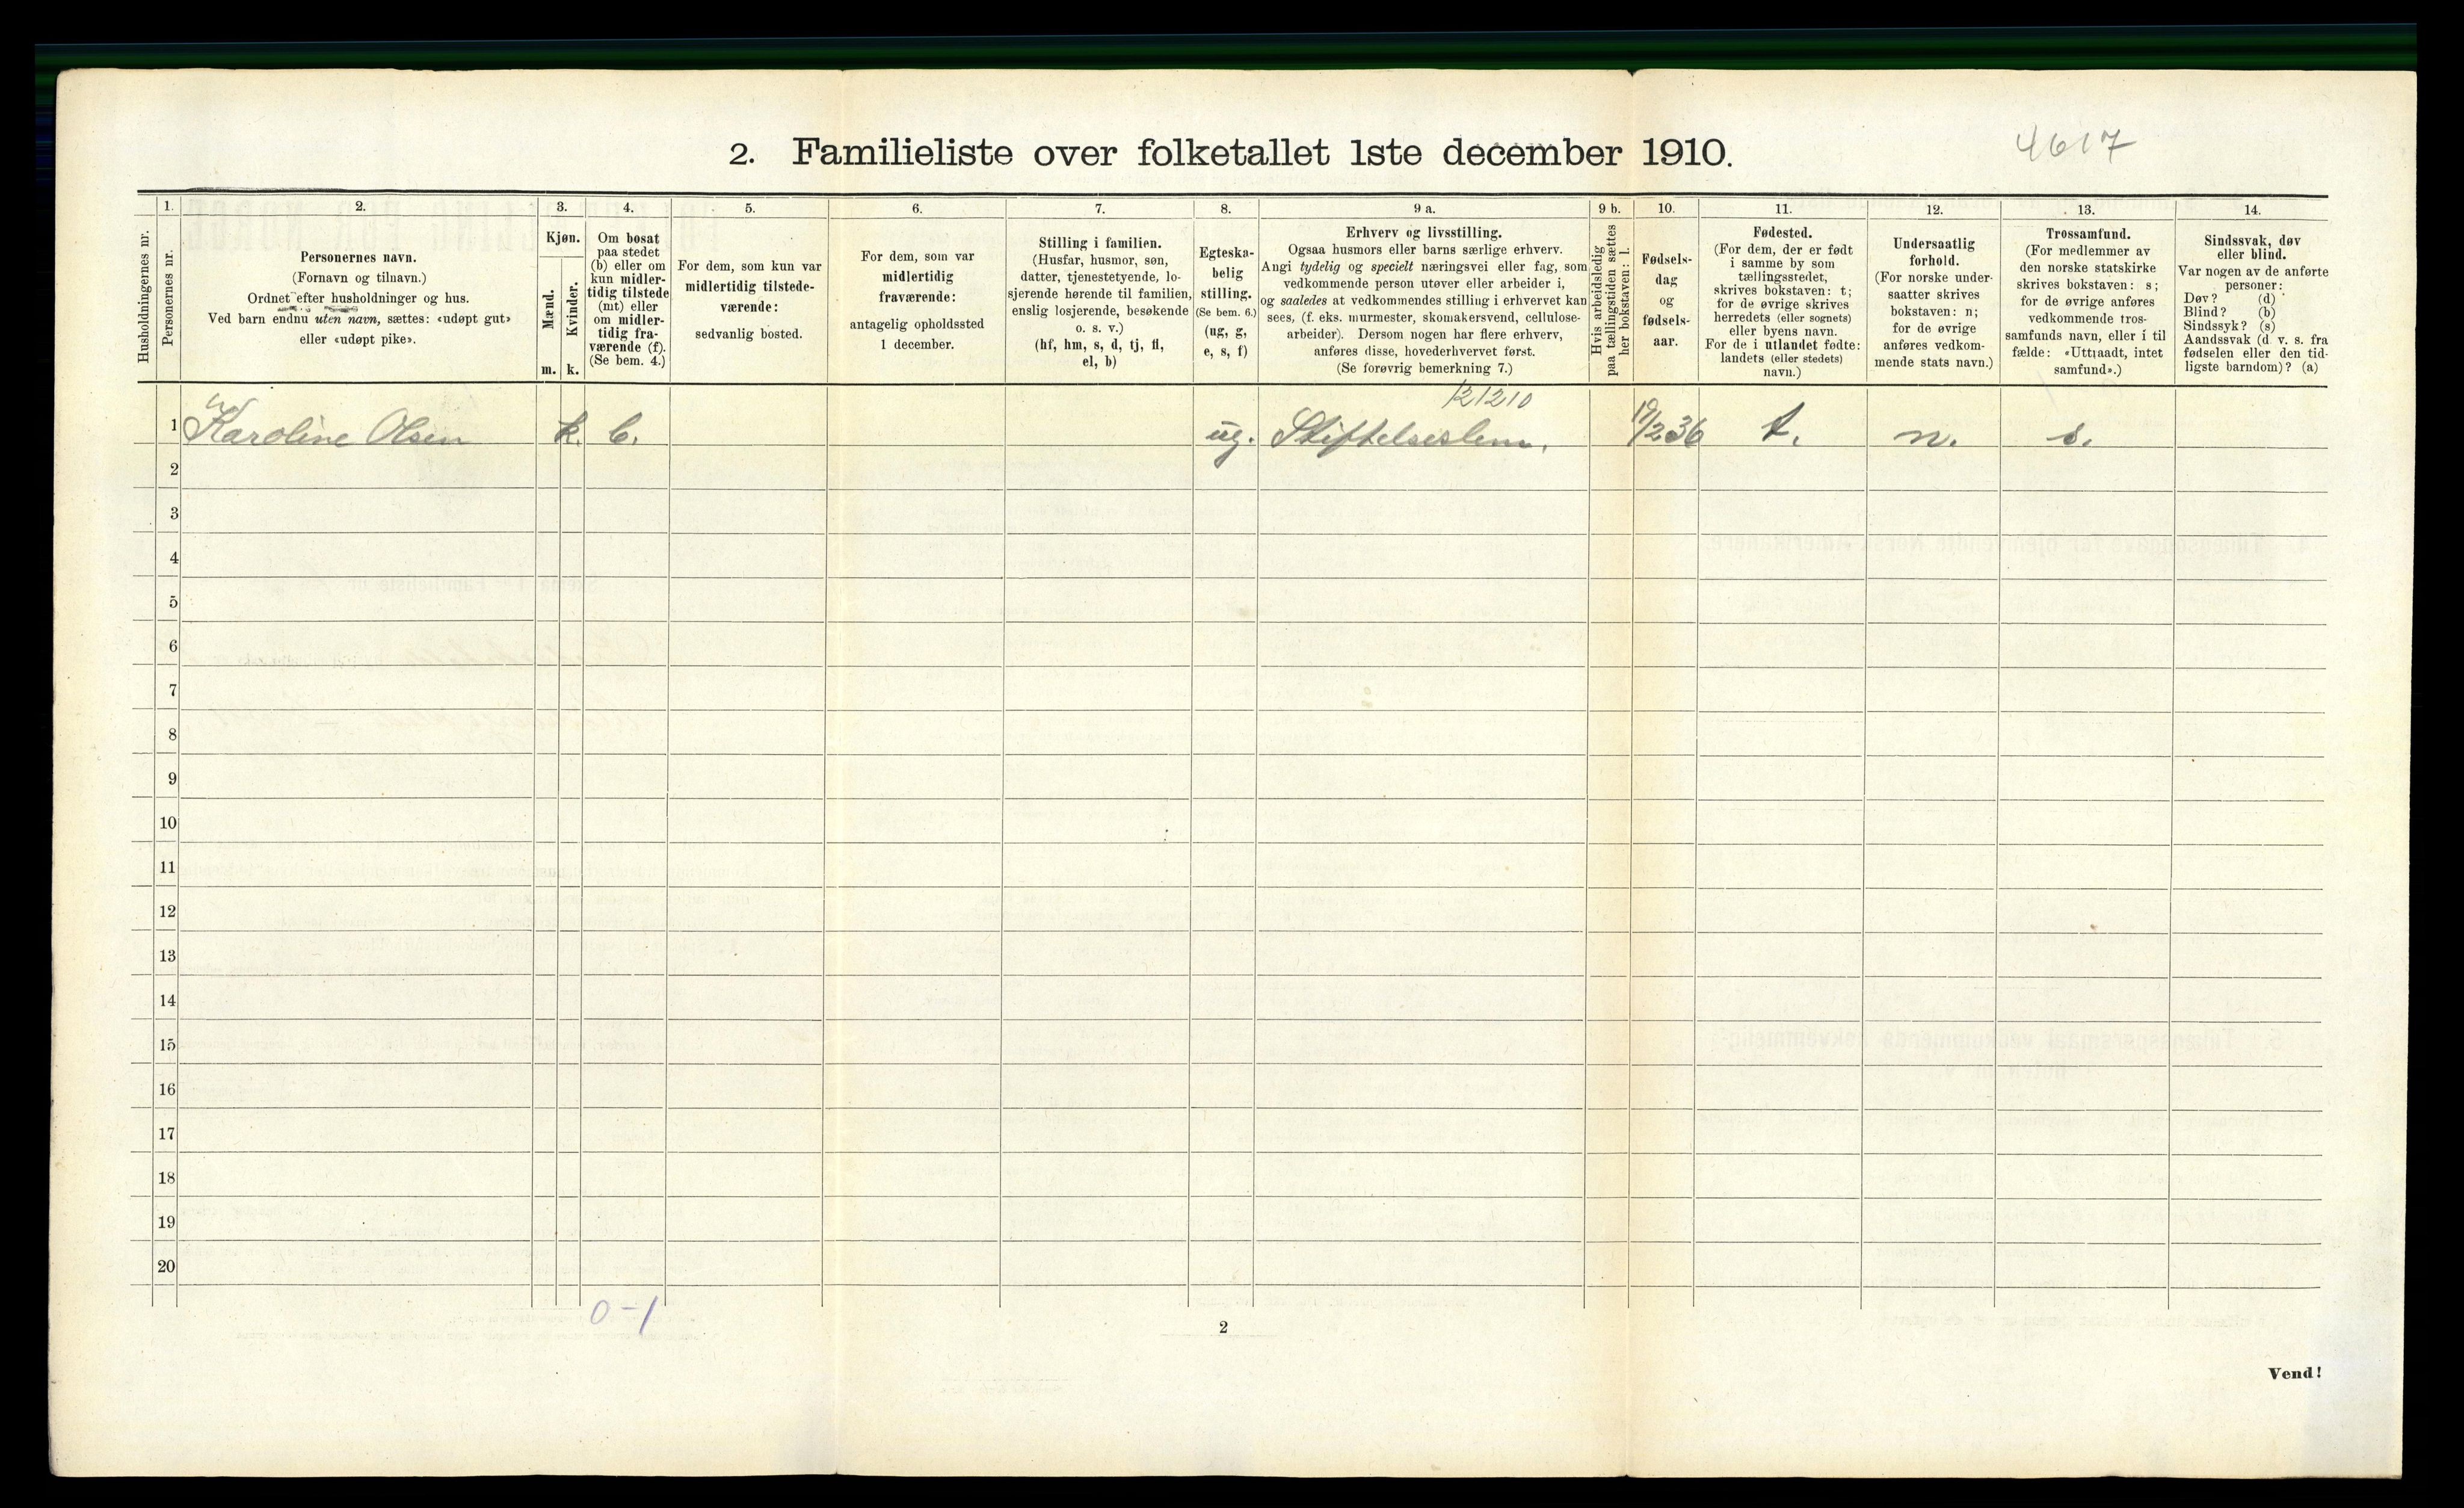 2. Familieliste over folketallet 1ste december 1910.
4617
Husholdningernes nr.
1.
Personernes nr.
2.
Personernes navn.
(Fornavn og tilnavn.)
Ordnet efter husholdninger og hus.
Ved barn endnu uten navn, sættes: «udøpt gut»
eller «udøpt pike».
3.
Kjøn.
Mænd.
m.
Kvinder.
k.
4.
Om bosat
paa stedet
(b) eller om
kun midler-
tidig tilstede
(mt) eller
om midler-
tidig fra-
værende (f).
(Se bem. 4.)
5.
For dem, som kun var
midlertidig tilstede-
værende:
sedvanlig bosted.
6.
For dem, som var
midlertidig
fraværende:
antagelig opholdssted
1 december.
7.
Stilling i familien.
(Husfar, husmor, søn,
datter, tjenestetyende, lo-
sjerende hørende til familien,
enslig losjerende, besøkende
o. s. v.)
(hf, hm, s, d, tj, fl,
el, b)
8.
Egteska-
belig
stilling.
(Se bem. 6.)
(ug, g,
e, s, f)
9 a.
Erhverv og livsstilling.
Ogsaa husmors eller barns særlige erhverv.
Angi tydelig og specielt næringsvei eller fag, som
vedkommende person utøver eller arbeider i,
og saaledes at vedkommendes stilling i erhvervet kan
sees, (f. eks. murmester, skomakersvend, cellulose-
arbeider). Dersom nogen har flere erhverv,
anføres disse, hovederhvervet først.
(Se forøvrig bemerkning 7.)
9 b.
Hvis arbeidsledig
paa tællingstiden sættes
her bokstaven: l.
10.
Fødsels-
dag
og
fødsels-
aar.
11.
Fødested.
(For dem, der er født
i samme by som
tællingsstedet,
skrives bokstaven: t;
for de øvrige skrives
herredets (eller sognets)
eller byens navn.
For de i utlandet fødte:
landets (eller stedets)
navn.)
12.
Undersaatlig
forhold.
(For norske under-
saatter skrives
bokstaven: n;
for de øvrige
anføres vedkom-
mende stats navn.)
13.
Trossamfund.
(For medlemmer av
den norske statskirke
skrives bokstaven: s;
for de øvrige anføres
vedkommende tros-
samfunds navn, eller i til
fælde: «Uttraadt, intet
samfund».)
14.
Sindssvak, døv
eller blind.
Var nogen av de anførte
personer:
Døv? (d)
Blind? (b)
Sindssyk? (s)
Aandssvak (d. v. s. fra
fødselen eller den tid-
ligste barndom)? (a)
12120
1 Karoline Olsen k. b. ug. Stiftelseslem. 19/2 36 t. n. s.
2
3
4
5
6
7
8
9
10
11
12
13
14
15
16
17
18
19
20
0-1
2
Vend!